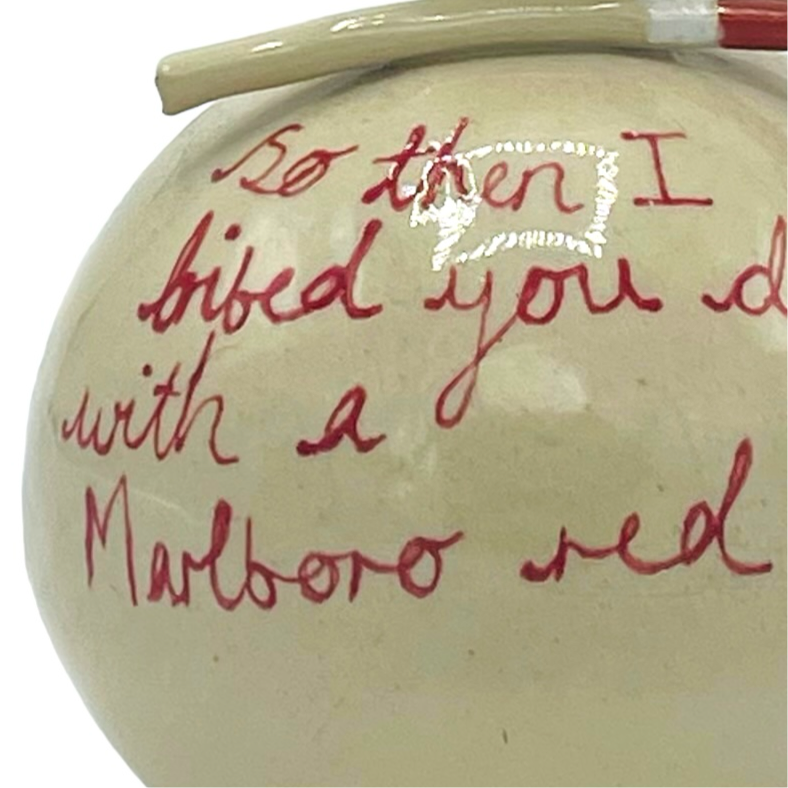 So then I
bibed you d
with a
Marlboro red